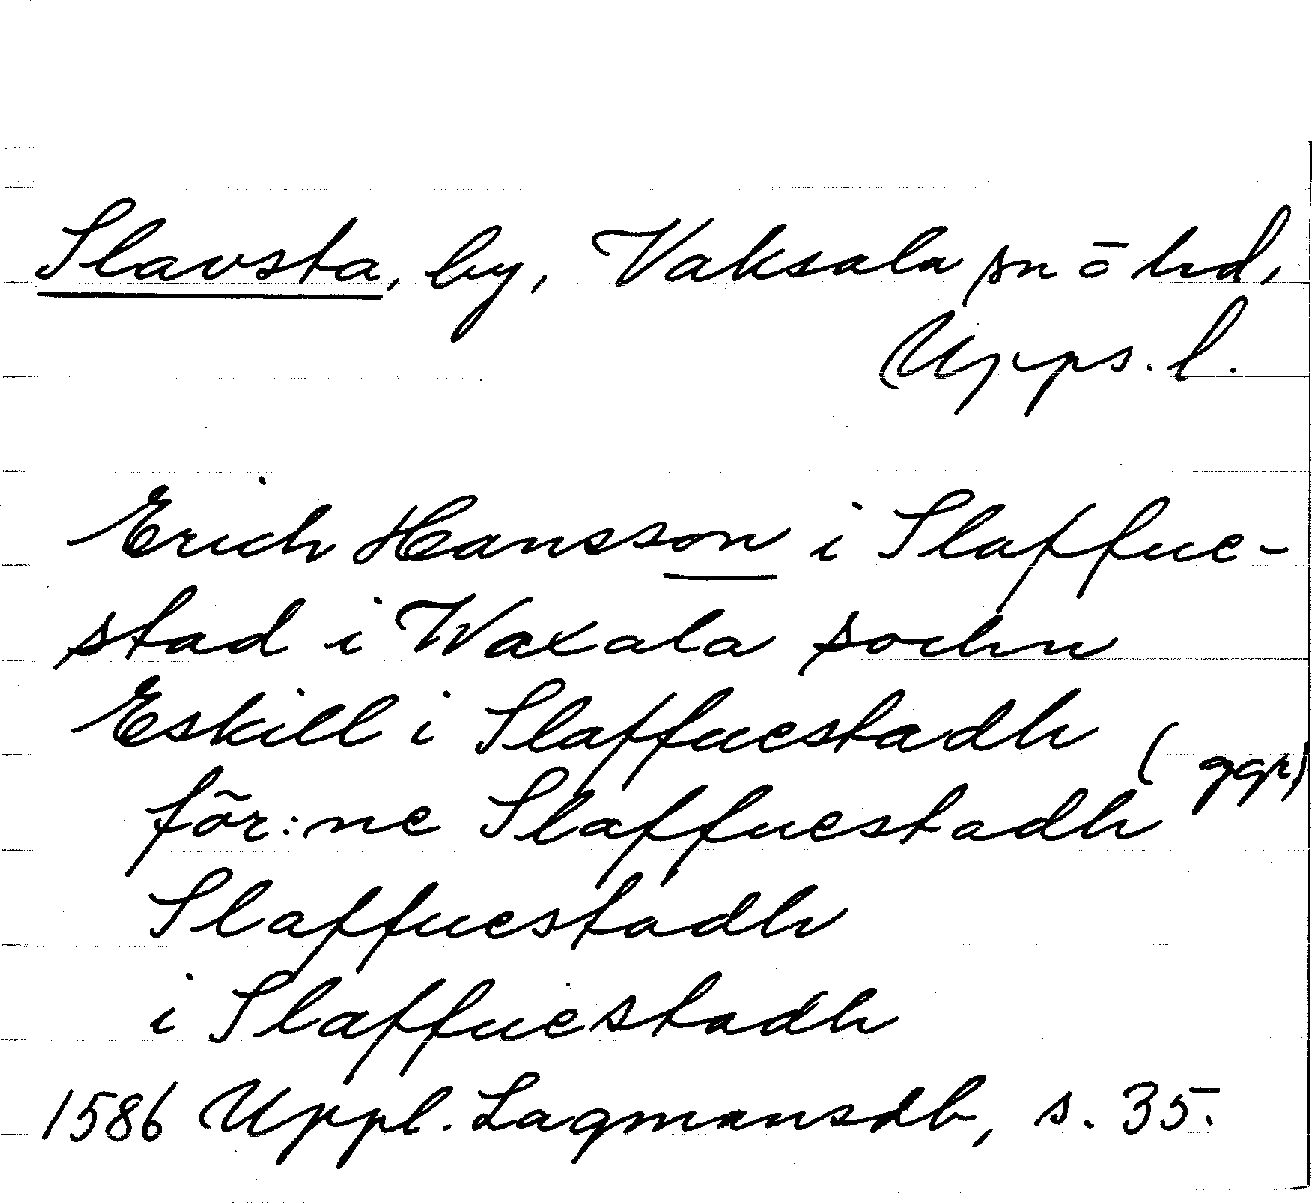 Slavsta, by, Vaksala sn o hd,
Upps. l.
Erich Hansson i Slaffue-
stad i Waxala sochn
Eskill i Slaffuestadh (ggr)
för:ne Slaffuestadh
Slaffuestadh
i Slaffuestadh
1586 Uppl. Lagmansdb, s. 35.